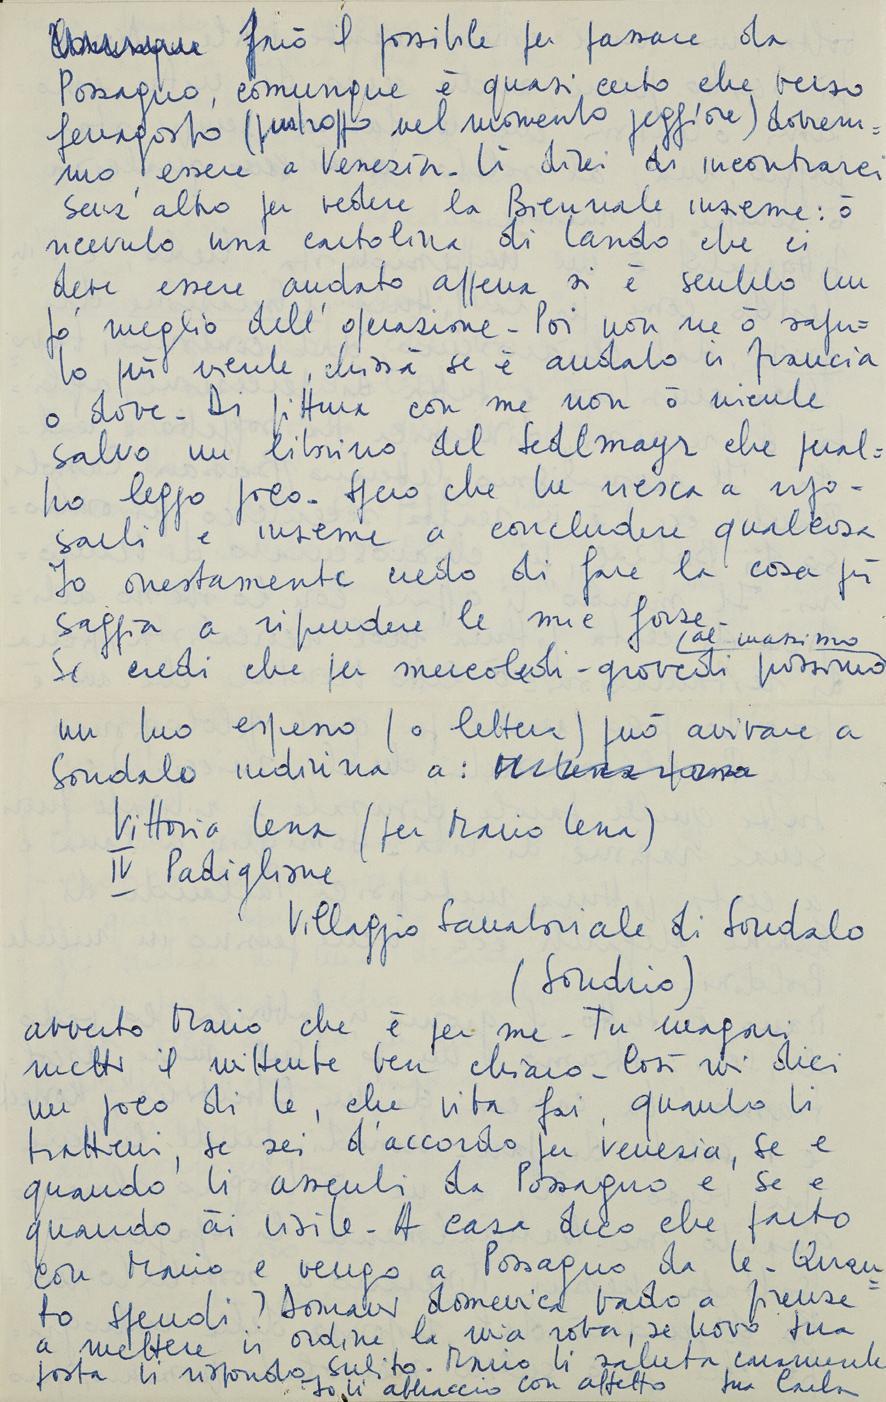 Comunque Farò il possibile per passare da
Possagno, comunque è quasi certo che verso
ferragosto (purtroppo nel momento peggiore) dovrem=
mo essere a Venezia - ti direi di incontrarci
senz'altro per vedere la Biennale insieme: ò
ricevuto una cartolina di Lando che ci
deve essere andato appena si è sentito un
pò meglio dell'operazione - Poi non ne ò sapu=
to più niente, chissà se è andato in Francia
o dove - Di pittura con me non ò niente
salvo un librino del Sedlmayr che pur=
leggo poco - Spero che tu riesca a ripo-
sarti e insieme a concludere qualcosa
Io onestamente credo di fare la cosa più
saggia a riprendere le mie forze -
(al massimo
Se credi che per mercoledi - giovedi prossimo
un tuo espresso (o lettera) può arrivare a
Sondalo indirizza a:
Vittoria Lena (per Mario Lena)
IV Padiglione
Villaggio Sanatoriale di Sondalo
(Sondrio)
avverto Mario che è per me - Tu magari
metti il mittente ben chiaro - Così mi dici
un poco di te, che vita fai, quanto ti
trattieni, se sei d'accordo per Venezia, se e
quando ti assenti da Possagno e se e
quando ài visite - A casa dico che parto
con Mario e vengo a Possagno da te - Quan=
to spendi? Domani domenica vado a Firenze
a mettere in ordine la mia roba, se trovo tua
posta ti rispondo subito - Mario ti saluta caramente
Io ti abbraccio con affetto tua Carla